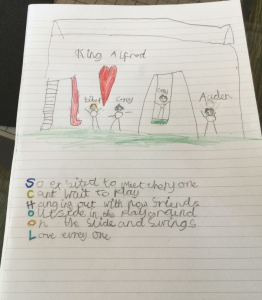 King Alfred
Cody
Auden
So excited to meet every one
Cant wait to play
Hanging out with new friends
Outside in the playground
On the slide and swings
Love every one